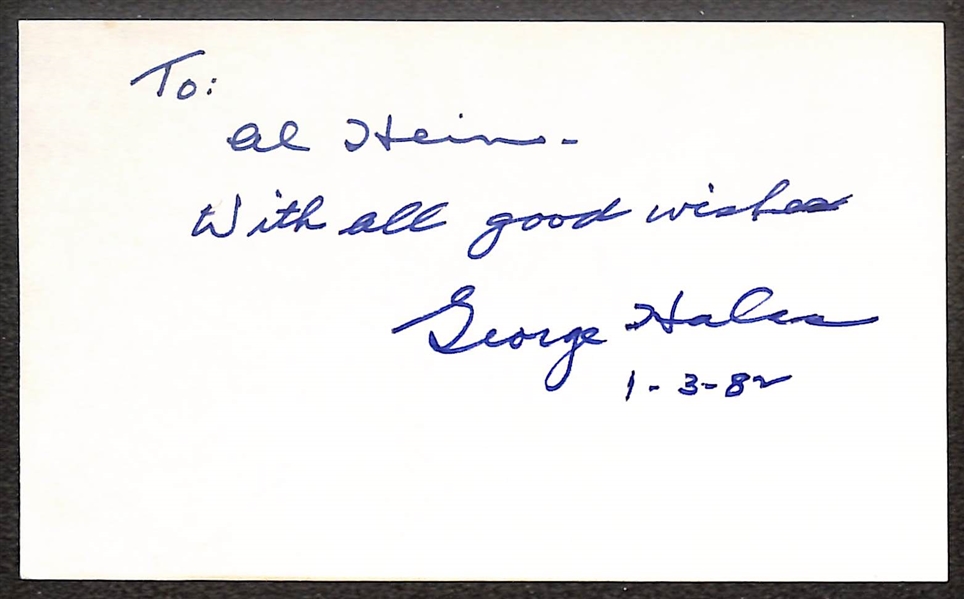 To:
Al Hein-
With all good wishes
George Halas
1-3-82